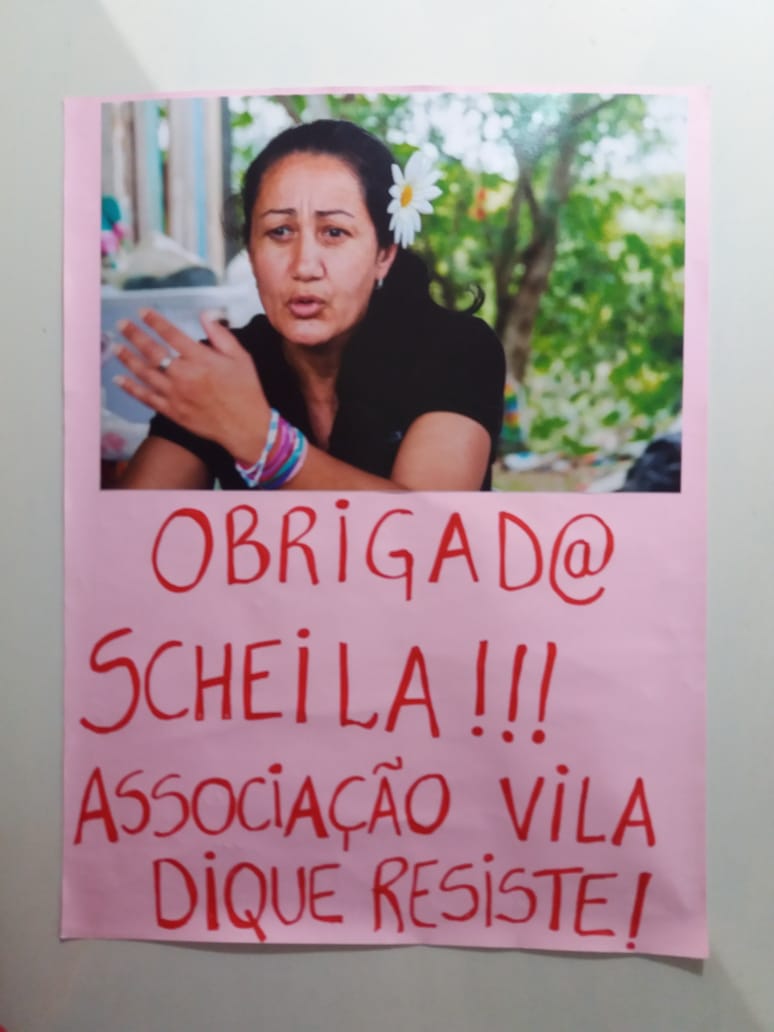 OBRIGAD@
SCHEILA!!!
ASSOCIAÇÃO VILA
DIQUE RESISTE!